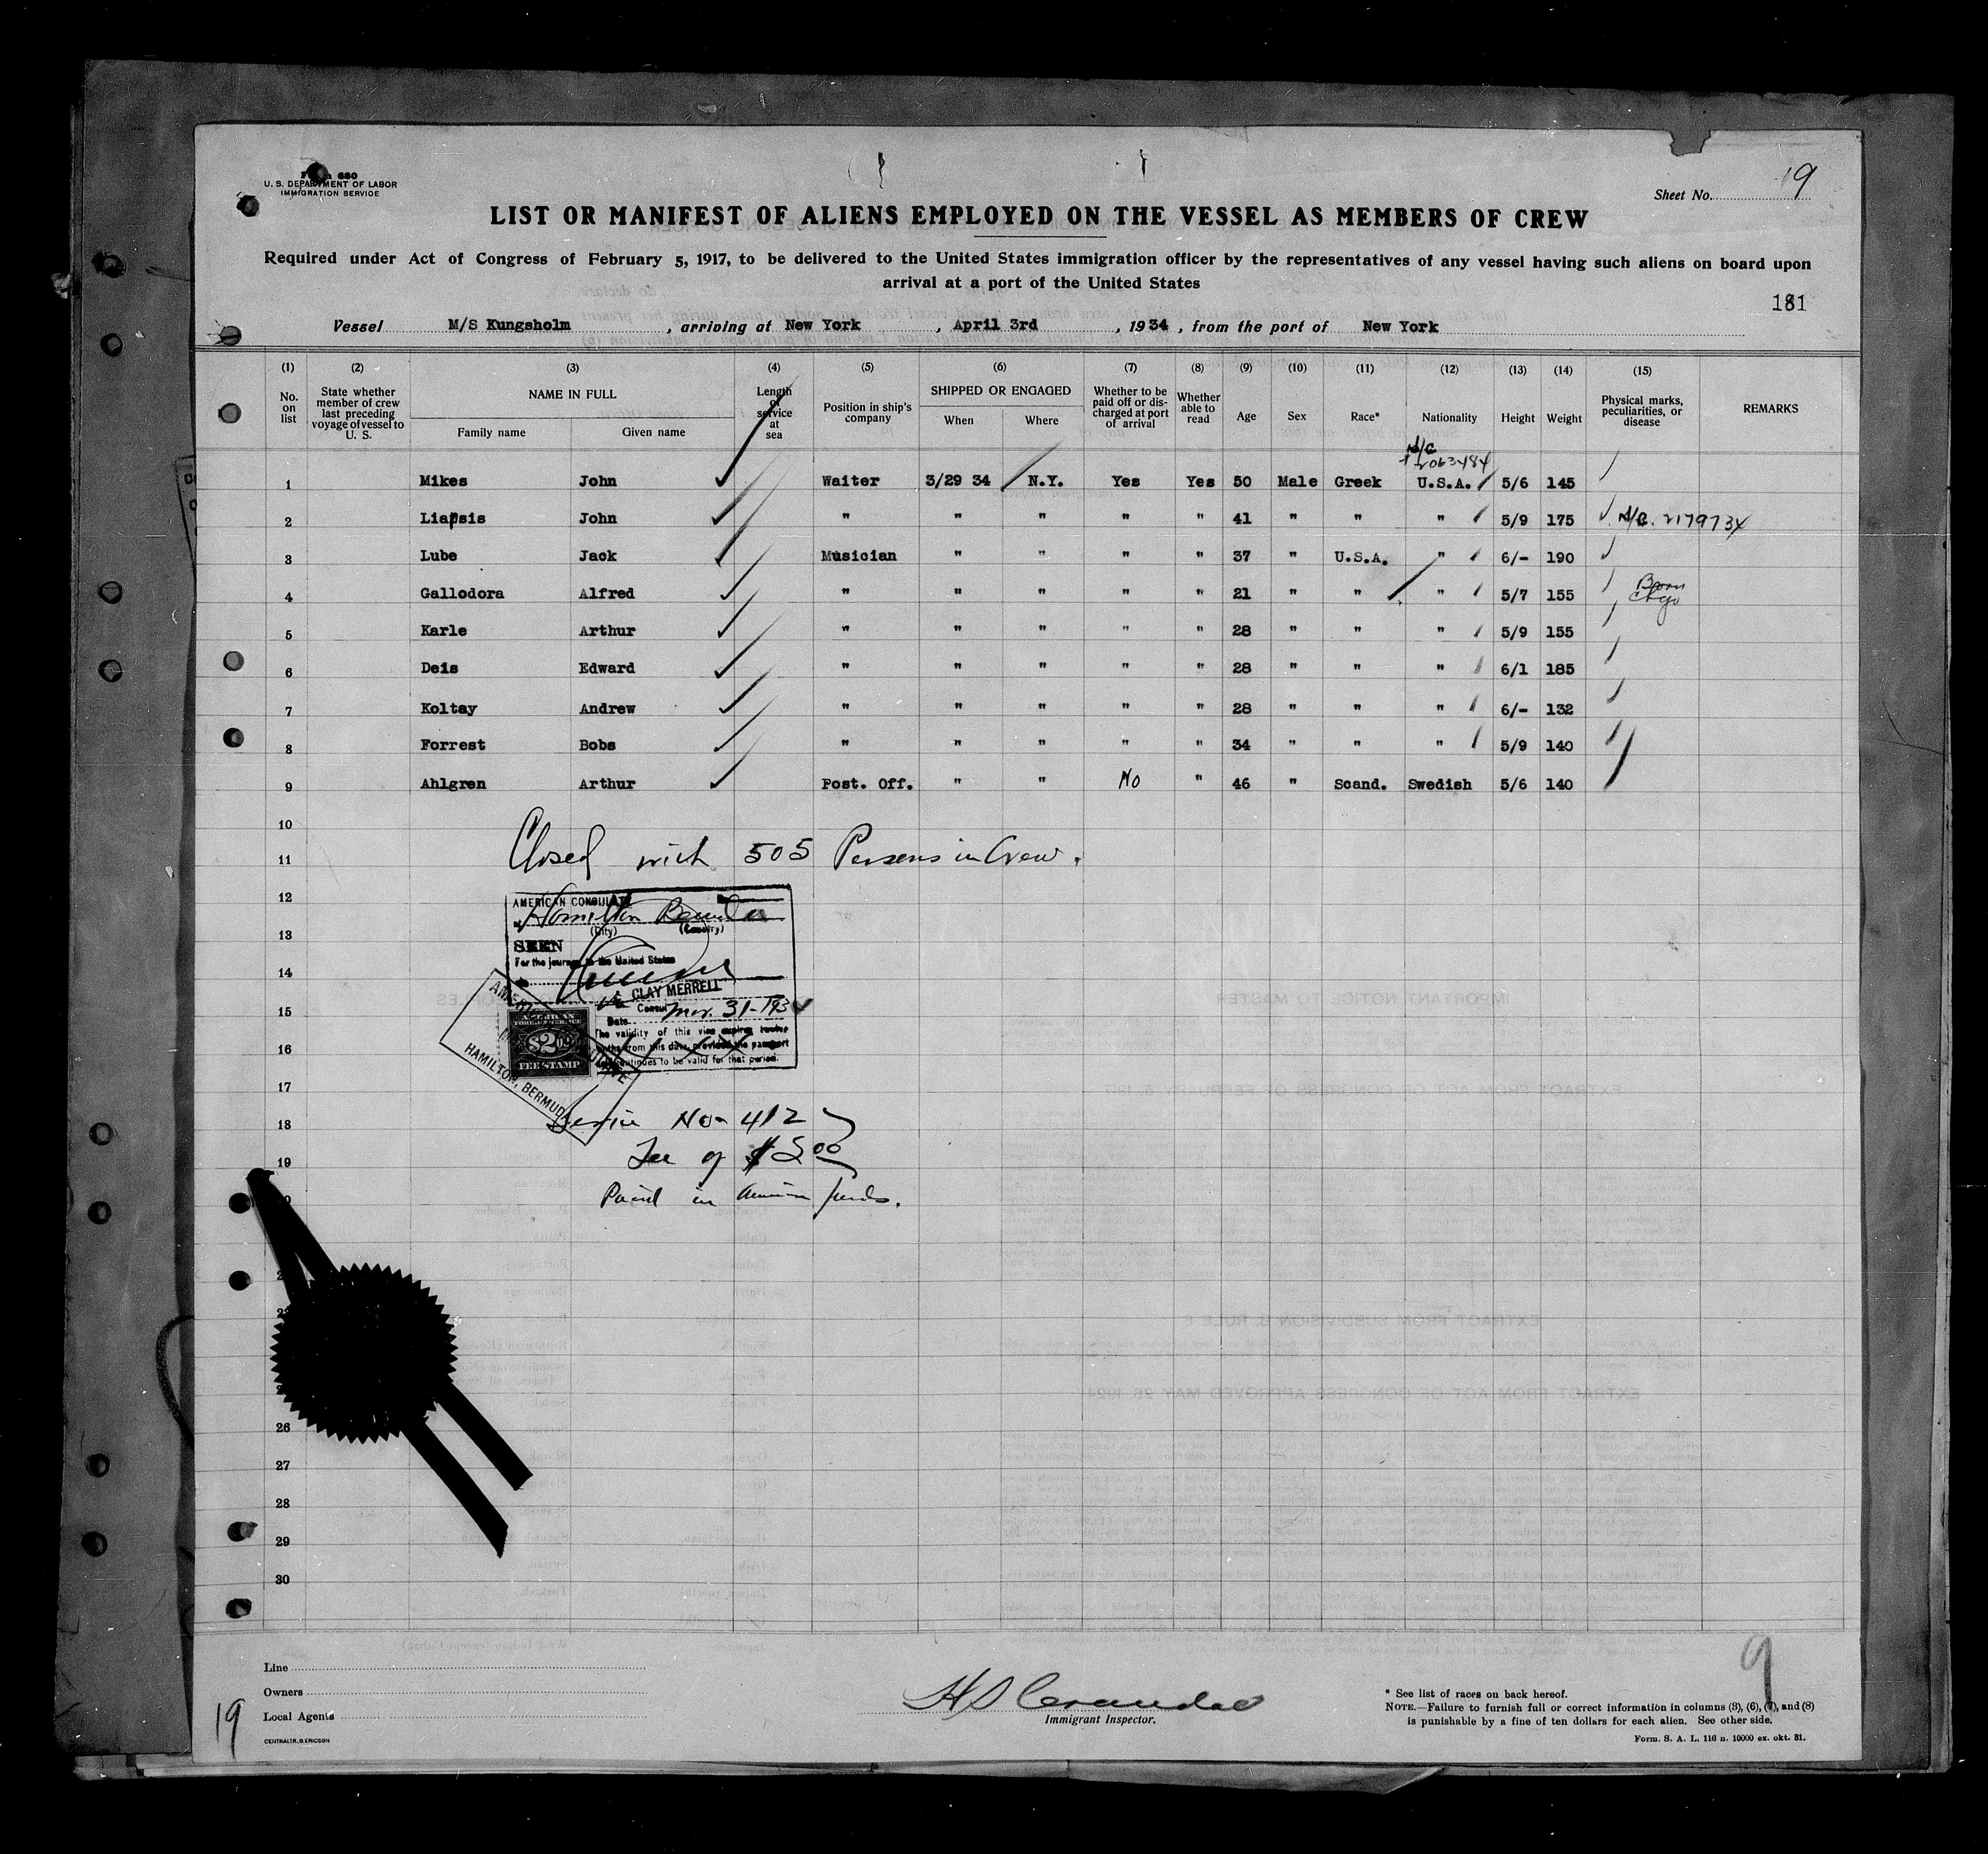 Form 680
U. S. DEPARTMENT OF LABOR
IMMIGRATION SERVICE
Sheet No. 19
LIST OR MANIFEST OF ALIENS EMPLOYED ON THE VESSEL AS MEMBERS OF CREW
Required under Act of Congress of February 5, 1917, to be delivered to the United States immigration officer by the representatives of any vessel having such aliens on board upon
arrival at a port of the United States
181
Vessel M/S Kungsholm, arriving at New York, April 3rd, 1934, from the port of New York
(1) (2) (3) (4) (5) (6) (7) (8) (9) (10) (11) (12) (13) (14) (15)
No. on list State whether member of crew last preceding voyage of vessel to U. S. NAME IN FULL Family name Given name Length of service at sea Position in ship's company SHIPPED OR ENGAGED When Where Whether to be paid off or discharged at port of arrival Whether able to read Age Sex Race* Nationality Height Weight Physical marks, peculiarities, or disease REMARKS
1 Mikes John Waiter 3/29 34 N.Y. Yes Yes 50 Male Greek U.S.A. 5/6 145
2 Liapsis John " " " " " 41 " " " 5/9 175 N/C. 2179734
3 Lube Jack Musician " " " " 37 " U.S.A. " 6/- 190
4 Gallodora Alfred " " " " " 21 " " " 5/7 155 Born Chgo
5 Karle Arthur " " " " " 28 " " " 5/9 155
6 Deis Edward " " " " " 28 " " " 6/1 185
7 Koltay Andrew " " " " " 28 " " " 6/- 132
8 Forrest Bobs " " " " " 34 " " " 5/9 140
9 Ahlgren Arthur Post. Off. " " No " 46 " Scand. Swedish 5/6 140
10
11 Closed with 505 Persons in Crew.
12
13
14
15
16
17
18
19
26
27
28
29
30
AMERICAN CONSULATE
Hamilton Bermuda
(City) (Country)
SEEN
For the journey to the United States
CLAY MERRELL
Consul
Date Mar. 31-1934
The validity of this visa expires twelve
months from this date, provided the passport
continues to be valid for that period.
AMERICAN
FOREIGN SERVICE
$2.00
FEE STAMP
HAMILTON, BERMUDA
Service No- 412
Fee of $2.00
Paid in American funds.
Line
Owners
Local Agents
CENTRALTR. G. ERICSON
19
Immigrant Inspector.
9
* See list of races on back hereof.
NOTE.—Failure to furnish full or correct information in columns (3), (6), (7), and (8)
is punishable by a fine of ten dollars for each alien. See other side.
Form. S. A. L. 116 n. 10000 ex. okt. 31.